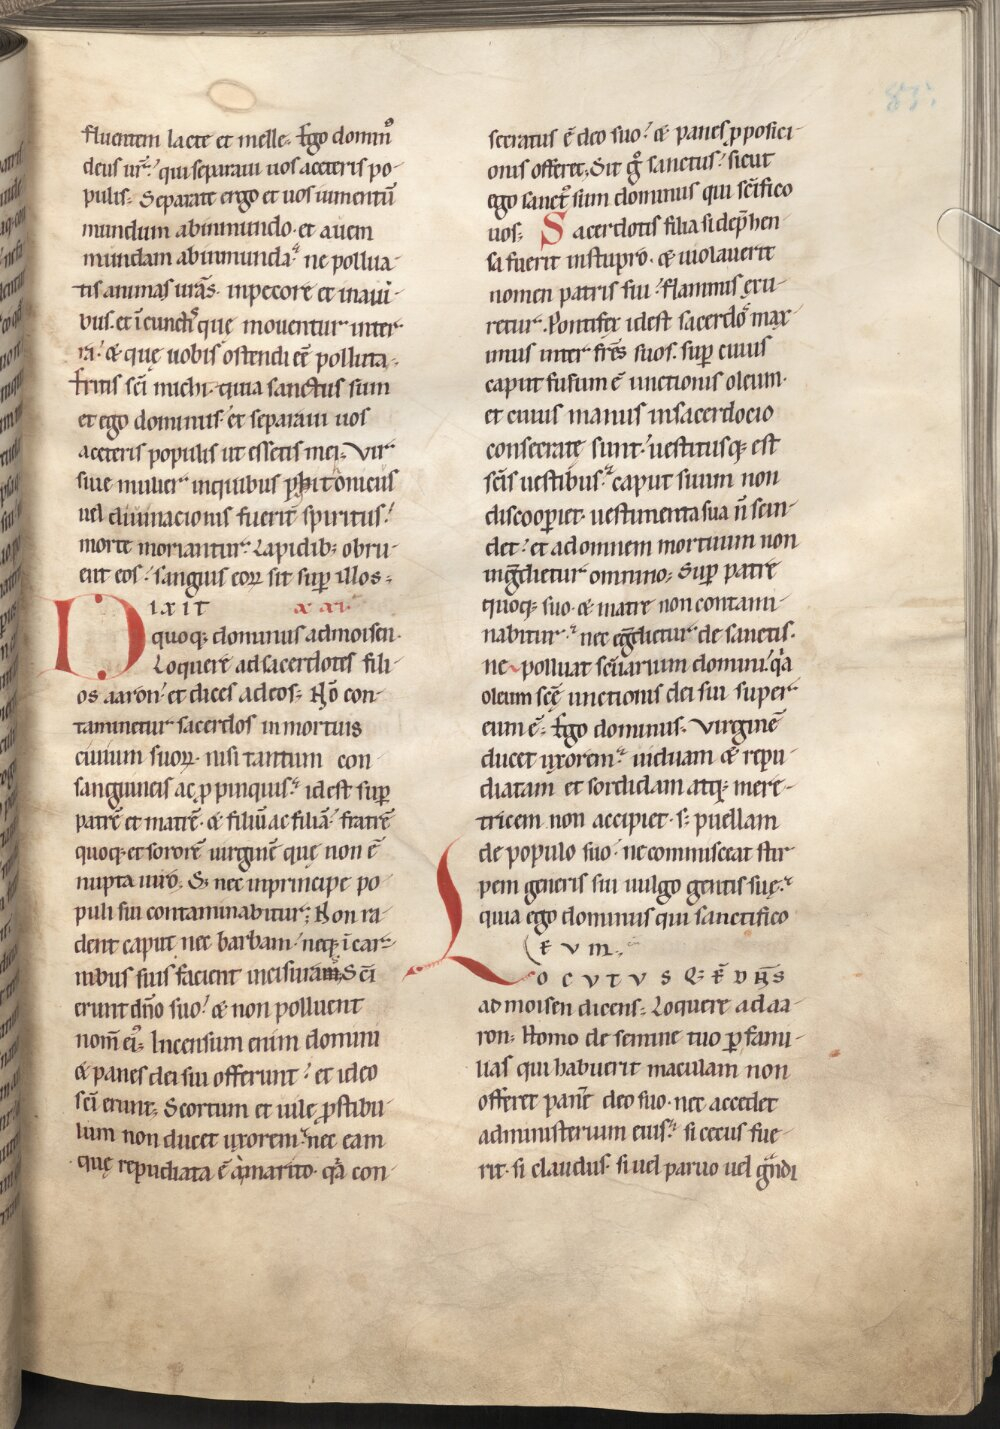 fluentem lacte et melle. Ego domin᷒
deus ur̅. qui separaui uos aceteris po-
pulis. Separate ergo et uos iumentū
mundum abinmundo. et auem
mundam abinmunda. ne pollua-
tis animas urās. inpecore et inaui-
bus. et īcunctis quę mouentur inter
ra. & quę uobis ostendi eē polluta.
Eritis sc̄i michi. quia sanctus sum
et ego dominus. et separaui uos
aceteris populis ut essetis mei. Vir
siue mulier inquibus phitonicus
uel diuinacionis fuerit spiritus.
morte moriantur. Lapidib; obru-
ent eos. sanguis eoꝝ sit suꝑ illos.
DIXIT XXI.
quoq; dominus admoisen.
Loquere adsacerdotes fili-
os aaron. et dices adeos. Nō con-
taminetur sacerdos inmortuis
ciuium suoꝝ. nisi tantum con-
sanguineis ac ꝓpinquis. idest suꝑ
patrē et matrē. & filiū ac filiā. fratrē
quoq; et sororē uirginē quę non ē
nupta uiro. S; nec inprincipe po-
puli sui contaminabitur; Non ra-
dent caput nec barbam. neq; īcar-
nibus suis facient incisuram. Sc̄i
erunt dn̄o suo. & non polluent
nom̄ ei᷒. Incensum enim domini
& panes dei sui offerunt. et ideo
sc̄i erunt. Scortum et uile ꝓstibu-
lum non ducet uxorem. nec eam
quę repudiata ē amarito. qa con-
secratus ē deo suo. & panes ꝓposici-
onis offeret. Sit gͦ sanctus. sicut
ego sanct᷒ sum dominus qui sc̄ifico
uos. Sacerdotis filia si dep̄hen-
sa fuerit instupro. & uiolauerit
nomen patris sui. flammis exu-
retur. Pontifex idest sacerdos max-
imus inter fr̄es suos. suꝑ cuius
caput fusum ē unctionis oleum.
et cuius manus insacerdocio
consecratę sunt. uestitusq; est
sc̄is uestibus. caput suum non
discooꝑiet. uestimenta sua n̄ scin-
det. et adomnem mortuum non
ingredietur omnino. Suꝑ patre
quoq; suo. & matre non contami-
nabitur. nec egredietur de sanctis.
ne polluat sc̄uarium domini. qa
oleum scē unctionis dei sui super
eum ē. Ego dominus. Virginē
ducet uxorem. uiduam & repu-
diatam et sordidam atq; mere-
tricem non accipiet. s; puellam
de populo suo. ne commisceat stir
pem generis sui uulgo gentis suę.
quia ego dominus qui sanctifico
EVM.
LOCVTVS Q; Ē DN̄S
admoisen dicens. Loquere ad aa-
ron. Homo de semine tuo ꝑ fami-
lias qui habuerit maculam non
offeret panes deo suo. nec accedet
administerium eius. si cecus fue-
rit. si claudus. si uel paruo uel grandi